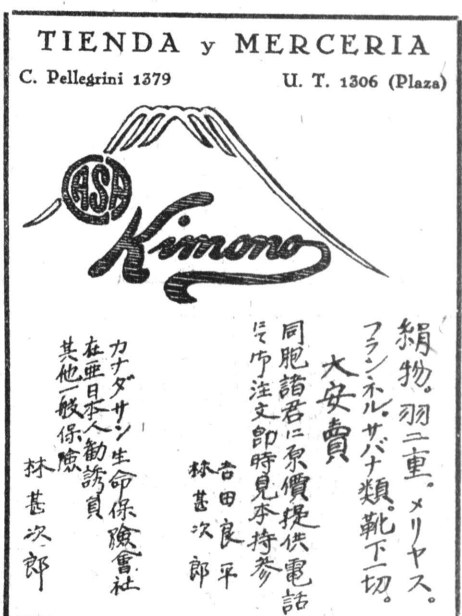 TIENDA y MERCERIA
C. Pellegrini 1379
U. T. 1306 (Plaza)
CASA
Kimono
絹物。羽二重。メリヤス。
フランネル。サバナ類。靴下一切。
大安賣
同胞諸君に原價提供電話
にて御注文即時見本持參
吉田良平
林甚次郎
カナダサン生命保險會社
在亜日本人勧誘員
其他一般保險
林甚次郎